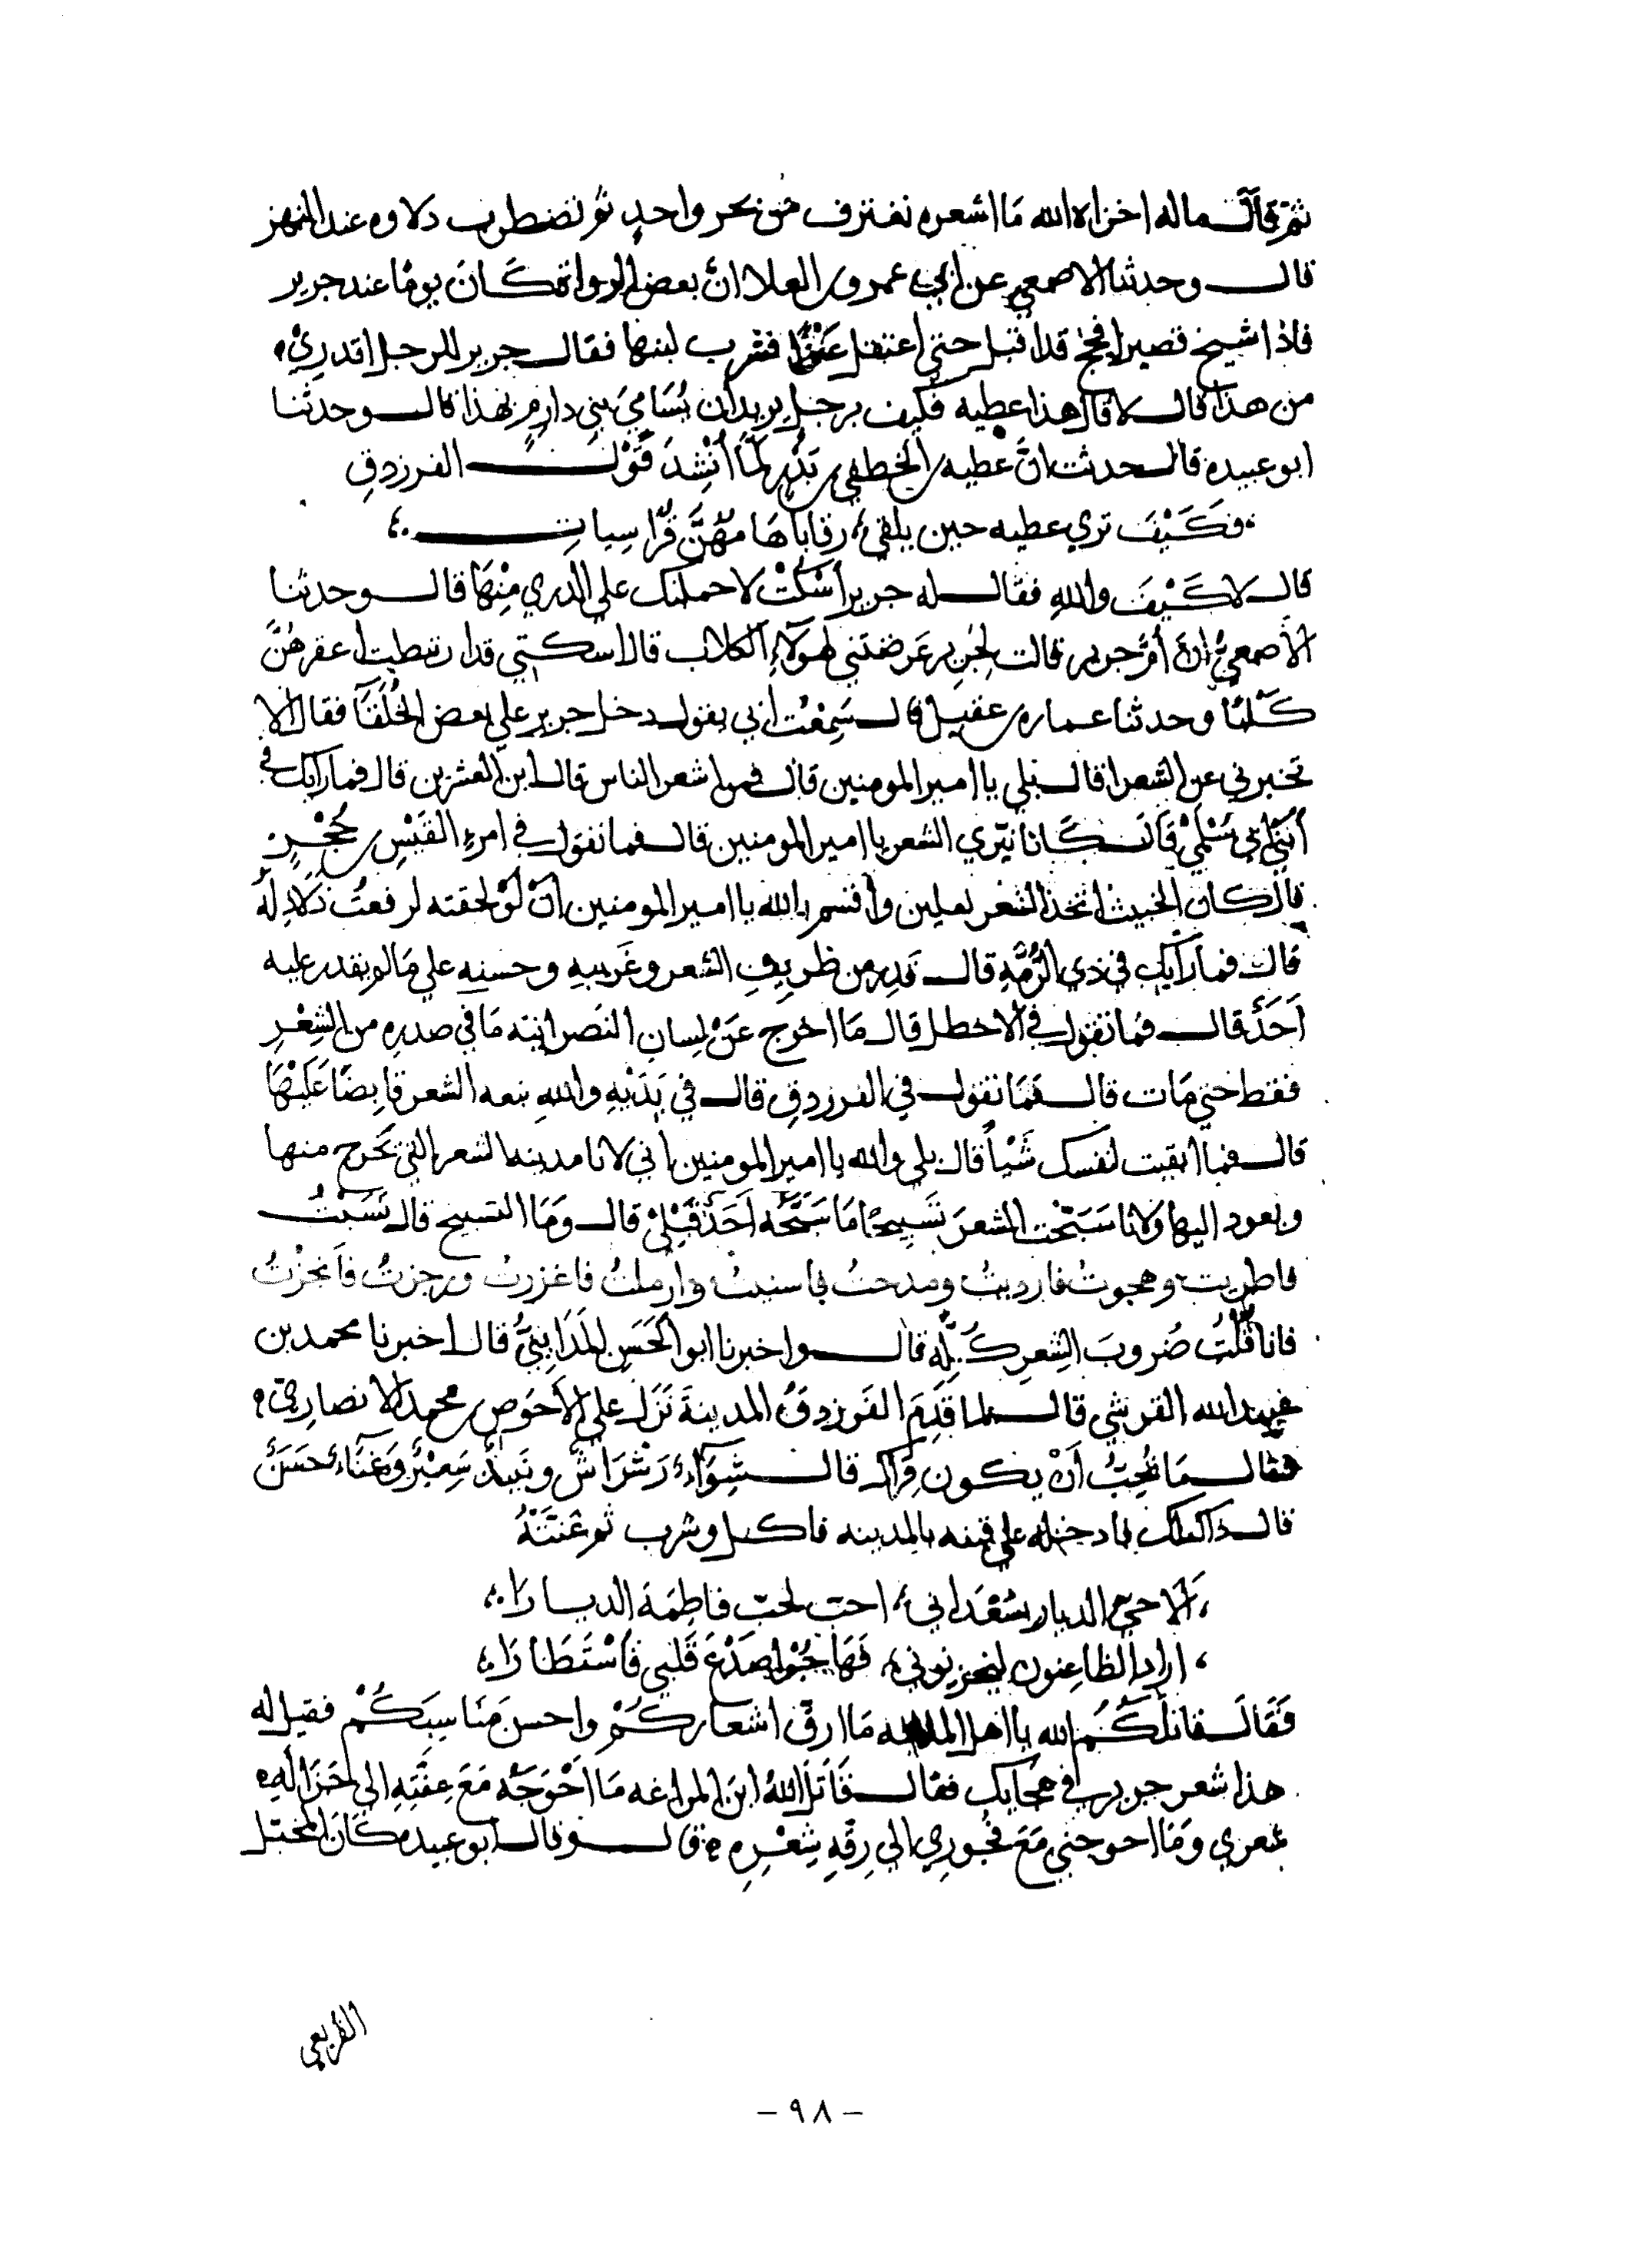 ثم قال ماله اخزاه الله ما اشعره نغترف من بحر واحد ثم تضطرب دلاوه عند المنهز
قال وحدثنا الاصمعي عن ابي عمرو بن العلا ان بعض الرواة كان يوما عند جرير
فاذا شيخ قصير افحج قد اقبل حتي اعتقل عنزا فشرب لبنها فقال جرير للرجل اتدري
من هذا قال لا قال هذا عطيه فكيف برجل يريد ان يسامي بني دارم بهذا قال وحدثنا
ابو عبيده قال حدثت ان عطيه بن الخطفي بن بدر لما انشد قول الفرزدق
فكيف تري عطيه حين يلقي رقابا هامهن قراسيات
قال لا كيف والله فقال له جرير اسكت لاحملنك علي الذري منها قال وحدثنا
الاصمعي ان ام جرير قالت لجرير عرضتني لهولاء الكلاب قال اسكتي قد ارتبطت اعقرهن
كلبا وحدثنا عماره بن عقيل قال سمعت ابي يقول دخل جرير علي بعض الخلفا فقال الا
تخبرني عن الشعرا قال بلي يا امير المومنين قال فمن اشعر الناس قال ابن العشرين قال فما رايك في
ابني سلمي قال كانا نيري الشعر يا امير المومنين قال فما تقول في امرء القيس بن حجر
قال كان الخبيث اتخذ الشعر نعلين واقسم بالله يا امير المومنين ان لو لحقته لرفعت ذلاذله
قال فما رايك في ذي الرمه قال قدر من ظريف الشعر وغريبه وحسنه علي ما لم يقدر عليه
احد قال فما تقول في الاخطل قال ما اخرج عن لسان النصرانيه ما في صدره من الشعر
فقط حتي مات قال فما تقول في الفرزدق قال في يديه والله نبعه الشعر قابضا عليها
قال فما ابقيت لنفسك شيا قال بلي والله يا امير المومنين اني لانا مدينه الشعر التي يخرج منها
ويعود اليها ولانا سبحت الشعر تسبيحا ما سبحه احد قبلي قال وما التسبيح قال نسبت
فاطربت وهجوت فارديت ومدحت فاسنيت وارملت فاغزرت ورجزت فانجزت
فانا قلت ضروب الشعر كله قال واخبرنا ابو الحسن المدايني قال اخبرنا محمد بن
عبد الله القرشي قال لما قدم الفرزدق المدينة نزل علي الاحوص بن محمد الانصاري
فقال ما تحب ان يكون قراك قال شواء رشراش ونبيذ سعير وغناء حسن
قال ذاك لك فادخله علي قينه بالمدينه فاكل وشرب ثم غنته
الا حي الديار بسعد اني احب لحب فاطمة الديارا
اراد الظاعنون ليحزنوني فهاجوا صدع قلبي فاستطارا
فقال قاتلكم الله يا اهل المدينه ما ارق اشعاركم واحسن مناسبكم فقيل له
هذا شعر جرير في هجايك فقال قاتل الله ابن المراغه ما احوجه مع عفته الي جزاله
شعري وما احوجني مع فجوري الي رقه شعره قال وقال ابو عبيده كان المخبل
القريعي
- ٩٨ -